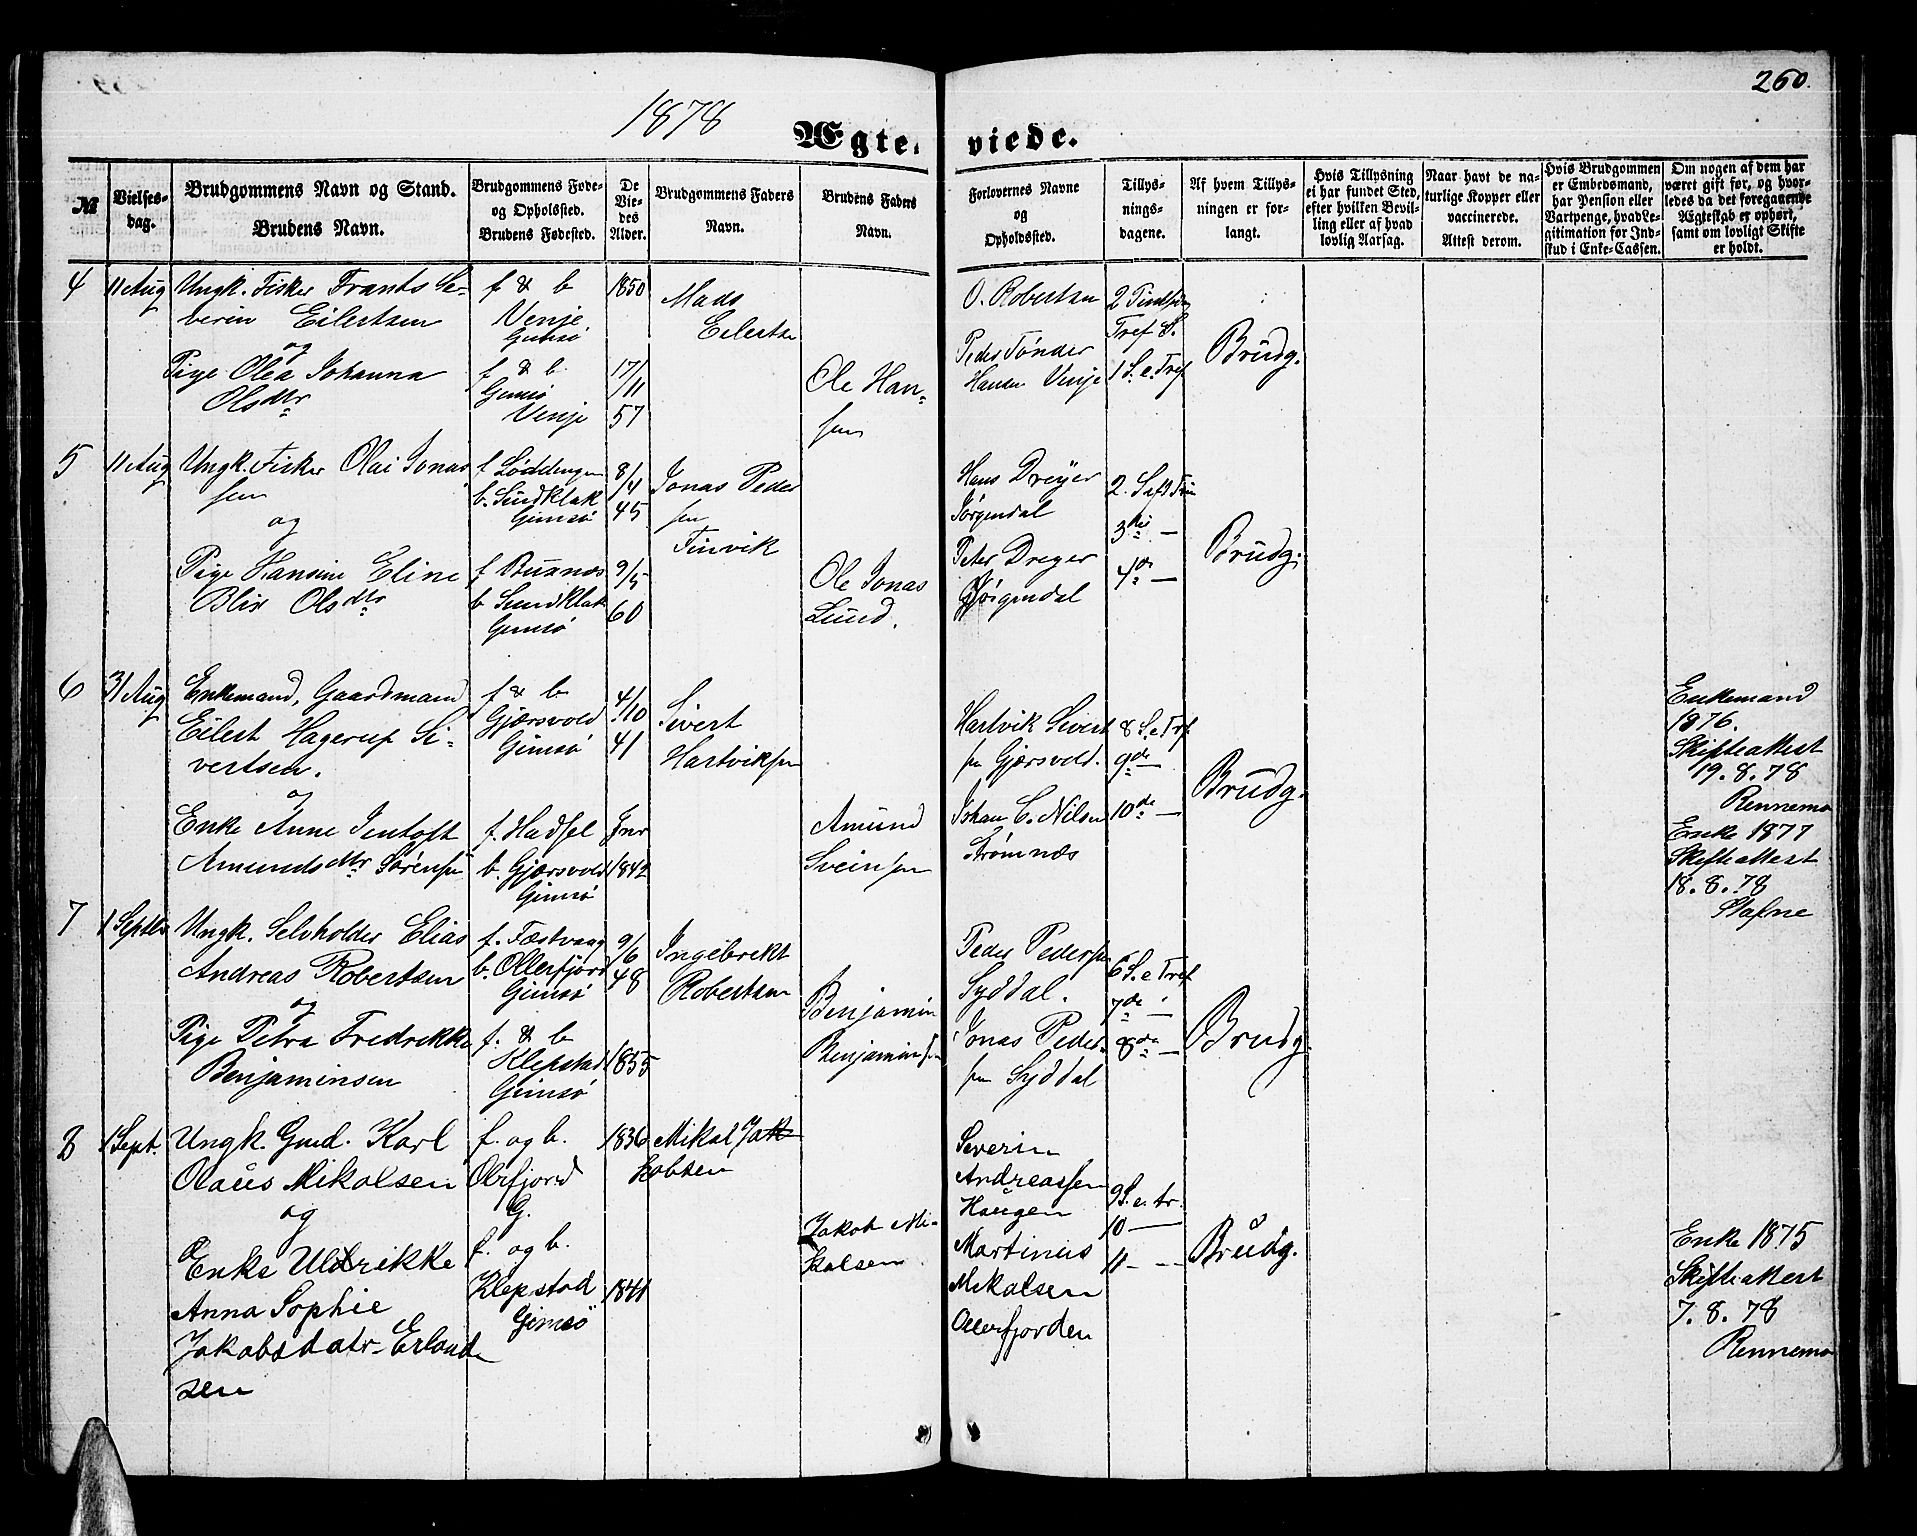 260.
1878
Ægteviede.
№
Vielses-
dag.
Brudgommens Navn og Stand.
Brudens Navn.
Brudgommens Føde-
og Opholsted.
Brudens Fødested.
De
Vie-
des
Alder.
Brudgommens Faders
Navn.
Brudens Faders
Navn.
Forlovernes Navne
og
Opholdssted.
Tillys-
nings-
dagene.
Af hvem Tillys-
ningen er for-
langt.
Hvis Tillysning
ei har fundet Sted,
efter hvilken Bevil-
ling eller af hvad
lovlig Aarsag.
Naar havt de na-
turlige Kopper eller
vaccinerede.
Attest derom.
Hvis Brudgommen
er Embedsmand,
har Pension eller
Vartpenge, hvad Le-
gitimation for Ind-
skud i Enke-Cassen.
Om nogen af dem har
været gift før, og hvor-
ledes da det foregaaende
Ægteskab er ophørt,
samt om lovligt Skifte
er holdt.
4
11 Aug
Ungk. Fisker Frants Se-
verin Eilertsen
og
Pige Olea Johanna
Olsdtr
f & b
Venje
Gimsø
f & b.
Gimsø
Venje
1850
17/
11
57
Mads
Eilertsen
Ole Han-
sen
O. Robertsen
Peder Tønder
Hansen Venje
Tref S.
1 S. e. Tref
Brudg.
5
11 Aug
Ungk. Fisker Olai Jonas
sen
og
Pige Hansine Eline
Blix Olsdtr
f Lødingen
b. Sundklak
Gimsø
f Buxnæs
b Sundklak
Gimsø
8/
4
45
9/5
60
Jonas Peder
sen
Finvik
Ole Jonas
Lund.
Hans Dreyer
Jørgendal
Peter Dreyer
Jørgendal
3die —
4de —
Brudg.
6
31 Aug
Enkemand, Gaardmand
Eilert Hagerup Si-
vertsen.
og
Enke Anne Jentoft
Amundsdtr Sørensen
f & b
Gjærsvold
Gimsø
f. Hadsel
b. Gjærsvold
Gimsø
4/
10
41
Jnr
1842
Sivert
Hartviksen
Amund
Sveinsen
Hartvik Sivert
sen Gjærsvold.
Johan C. Nilsen
Strømnæs
8 S. e. Trf
9de —
10de —
Brudg.
Enkemand
1876.
Skifteattest
19. 8. 78
Rennemo
Enke 1877
Skifteattest
18. 8. 78
Stafne
7
1 Septbr
Ungk. Selvholder Elias
Andreas Robertsen
og
Pige Petra Fredrikke
Benjaminsen
f. Festvaag
b. Ollerfjord
Gimsø
f. & b
Klepstad
Gimsø
9/6
48
1855
Ingebrekt
Robertsen
Benjamin
Benjaminsen
Peder Pedersen
Syddal.
Jonas Peder-
sen Syddal
6 S. e. Tref
7de —
8de —
Brudg.
8
1 Sept.
Ungk. Gmd. Karl
Olaus Mikalsen
og
Enke Ulrikke
Anna Sophie
Jakobsdatr. Erland-
sen
f. og b.
Olrfjord
G.
f. og b.
Klepstad
Gimsø
1836
1841
Mikal Jak
kobsen
Jakob Mi-
kalsen
Severin
Andreassen
Haugen
Martinus
Mikalsen
Ollerfjorden
9 S. e. tr.
10 —
11 — —
Brudg.
Enke 1875
Skifteattest
7. 8. 78
Rennemo